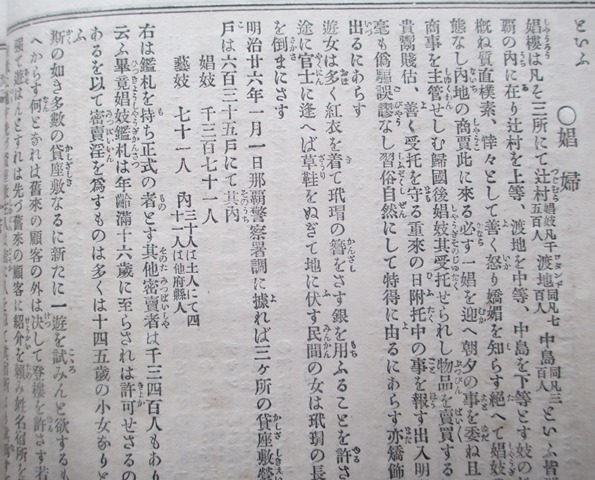 といふ
○娼婦
娼樓は凡を三所にて辻村娼妓凡千五百人渡地同凡七百人中島同凡三百人といふ皆
覇の内に在り辻村を上等、渡地を中等、中島を下等とす妓の
概ね質直樸素、悻々として善く怒り嬌媚を知らす絕へて娼妓
態なし內地の商賈此に來る必す一娼を迎へ朝夕の事を委ね且
商事を主管せしむ歸國後娼妓其受托せられし物品を賣買する
貴鬻賤估、善く受托を守る重來の日附托中の事を報す出入明
毫も僞騙誤謬なし習俗自然にして特得に由るにあらす亦矯飾
出るにあらす
遊女は多く紅衣を着て玳瑁の簪をさす銀を用ふることを許さ
途に官士に逢へば草鞋をぬぎて地に伏す民間の女は玳瑁の長
を倒まにさす
明治廿六年一月一日那覇警察署調に據れば三ヶ所の貸座敷營
戶は六百三十五戶にて其內
娼妓 千三百七十一人
藝妓 七十一人 內三十人は土人にて四十一人は他府縣人
右は鑑札を持ち正式の者とす其他密賣者は千三四百人もあり
云ふ畢竟娼妓鑑札は年齡滿十六歲に至らされは許可せさるの
あるを以て密賣淫を爲すものは多くは十四五歲の小女なりと
ふ
斯の如き多數の貸座敷なるに新たに一遊を試みんと欲するも
へからす何となれは舊來の顧客の外は決して登樓を許さす若
强て遊はんとすれは先づ舊來の顧客に紹介を賴み姓名宿所を